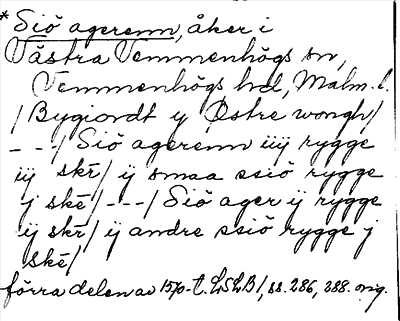 * Siö agerenn, åker i
Västra Vemmenhögs sn,
Vemmenhögs hd, Malm. l.
/Bygiordt y Østre wongh/
---/Siö agerenn iiij rygge
iij skr̄/ ij smaa ssiö rygge
j skē/ ---/Siö ager ij rygge
ij skr̄/ ij andre ssiö rygge j
skē/
förra delen av 1570-t. LSLB/, ss. 286, 288. orig.